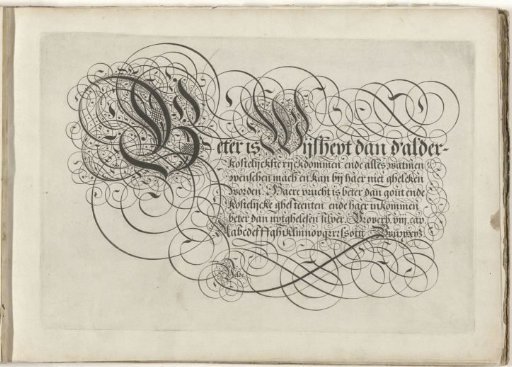 Beter is Wijsheyt dan d'alder-
kostelijckste rijckdommen ende alles watmen
wenschen mach en kan bij haer niet gheleken
worden. Haer vrucht is beter dan gout ende
kostelijcke ghesteenten ende haer inkommen
beter dan uytghelesen silver. Proverb. viij. cap
Aabcdefffghiklmnopqrrsſstu